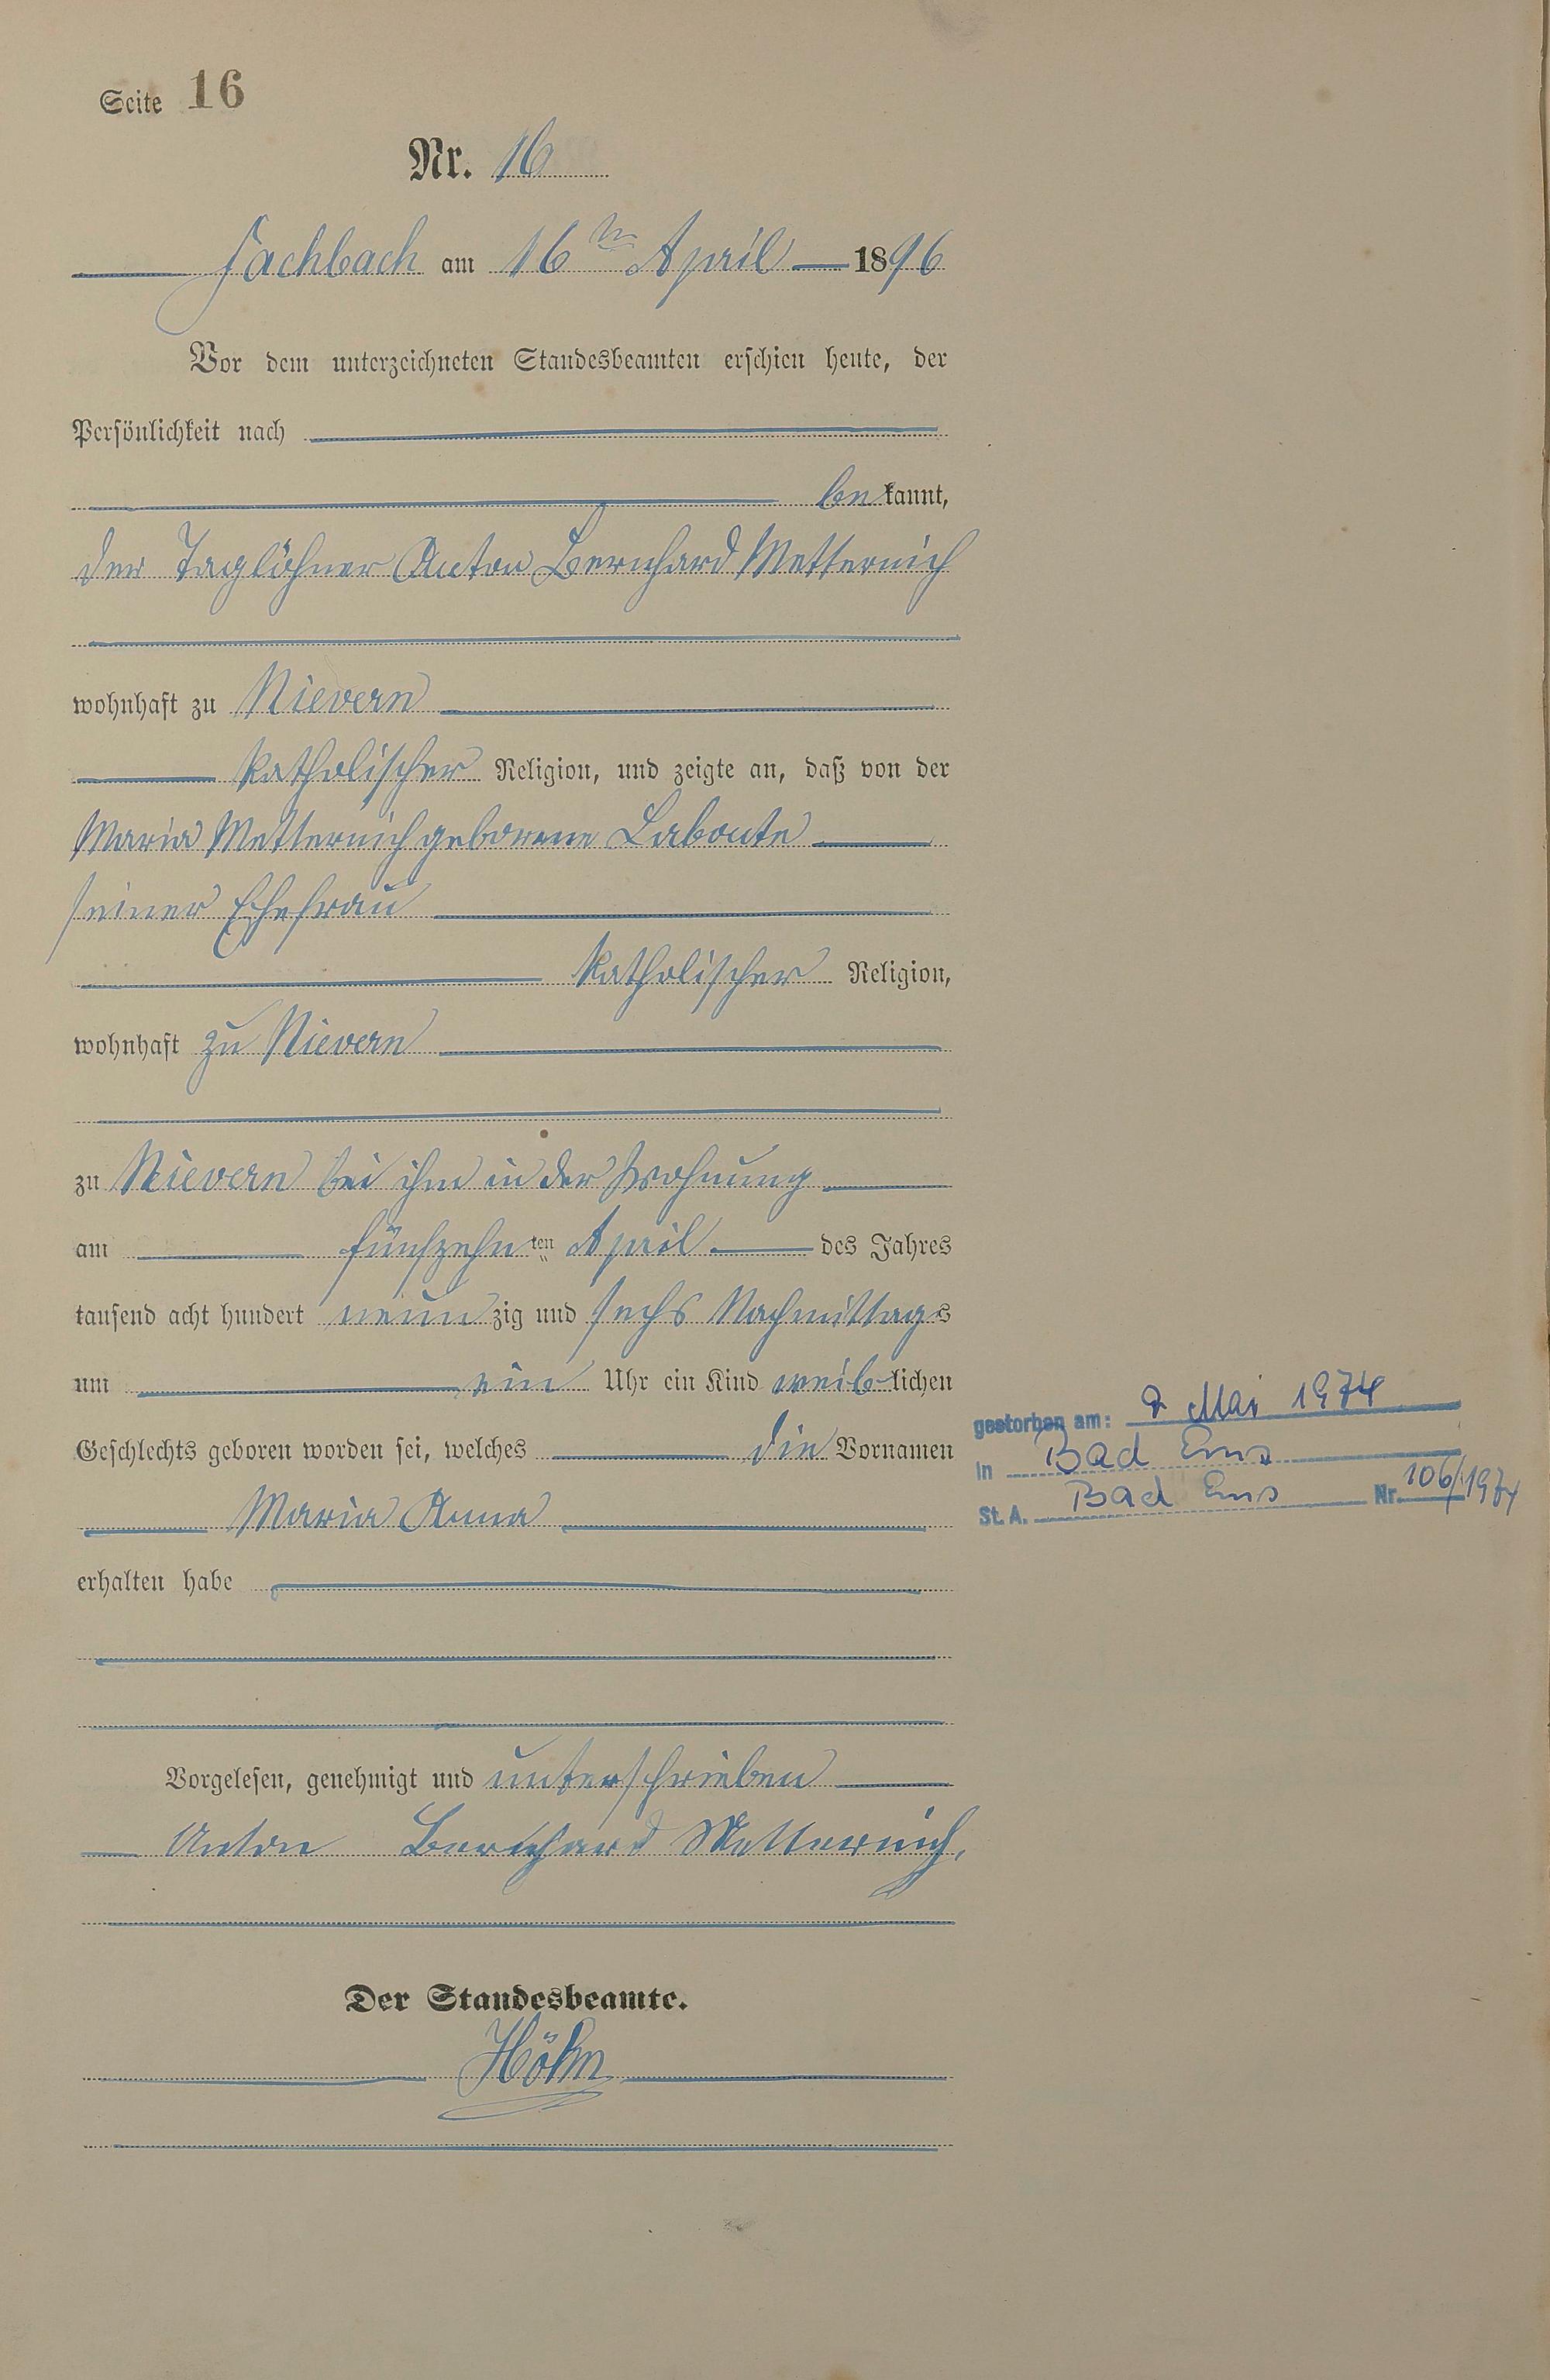 Seite 16
Nr. 16
Fachbach am 16ten April 1896
Vor dem unterzeichneten Standesbeamten erschien heute, der
Persönlichkeit nach
bekannt,
der Taglöhner Anton Bernhard Metternich
wohnhaft zu Nievern
katholischer Religion, und zeigte an, daß von der
Maria Metternich geborene Labonte
seiner Ehefrau
katholischer Religion,
wohnhaft zu Nievern
zu Nievern bei ihm in der Wohnung
am fünfzehnten April des Jahres
tausend acht hundert neunzig und sechs Nachmittags
um ein Uhr ein Kind weiblichen
Geschlechts geboren worden sei, welches die Vornamen
Maria Anna
erhalten habe
Vorgelesen, genehmigt und unterschrieben
Anton Bernhard Metternich.
Der Standesbeamte.
Höhn
gestorben am: Mai 1974
in Bad Ems
St. A. Bad Ems Nr. 106/1974